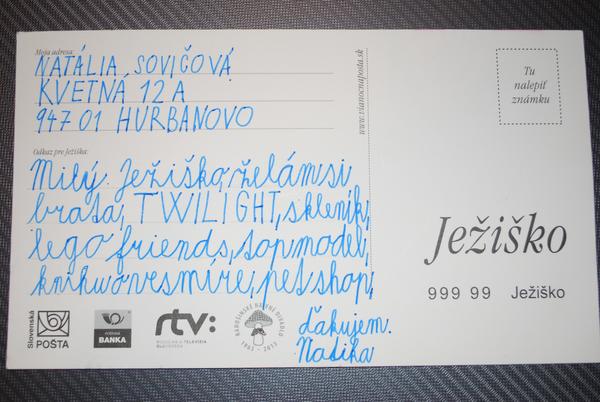 Moja adresa:
NATÁLIA SOVIČOVÁ
KVETNÁ 12 A
947 01 HURBANOVO
Odkaz pre Ježiška:
Milý Ježiško, želám si
brata, TWILIGHT, skleník,
lego friends, topmodel,
knihu o vesmíre, pet shop,
ďakujem.
Natika
www.vianocnaposta.sk
Tu
nalepiť
známku
Ježiško
999 99 Ježiško
Slovenská
POŠTA
POŠTOVÁ
BANKA
rtv:
ROZHLAS A TELEVÍZIA
SLOVENSKA
RADOŠINSKÉ NAIVNÉ DIVADLO
1963 - 2013